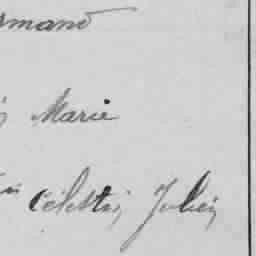 rmand
Marie
Célestin Julien